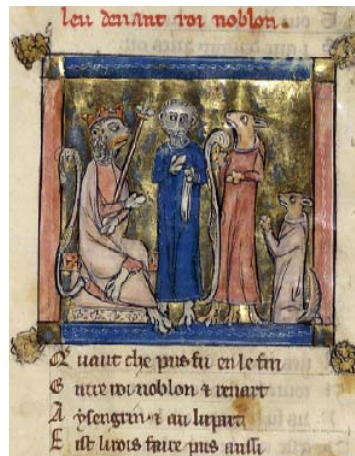 leu deuant roi noblon.
Q uant che pus fu en le fin
G ntre roi noblon ⁊ renart
A ysengrin ⁊ au lupart
E ist lirois faire pais aussi